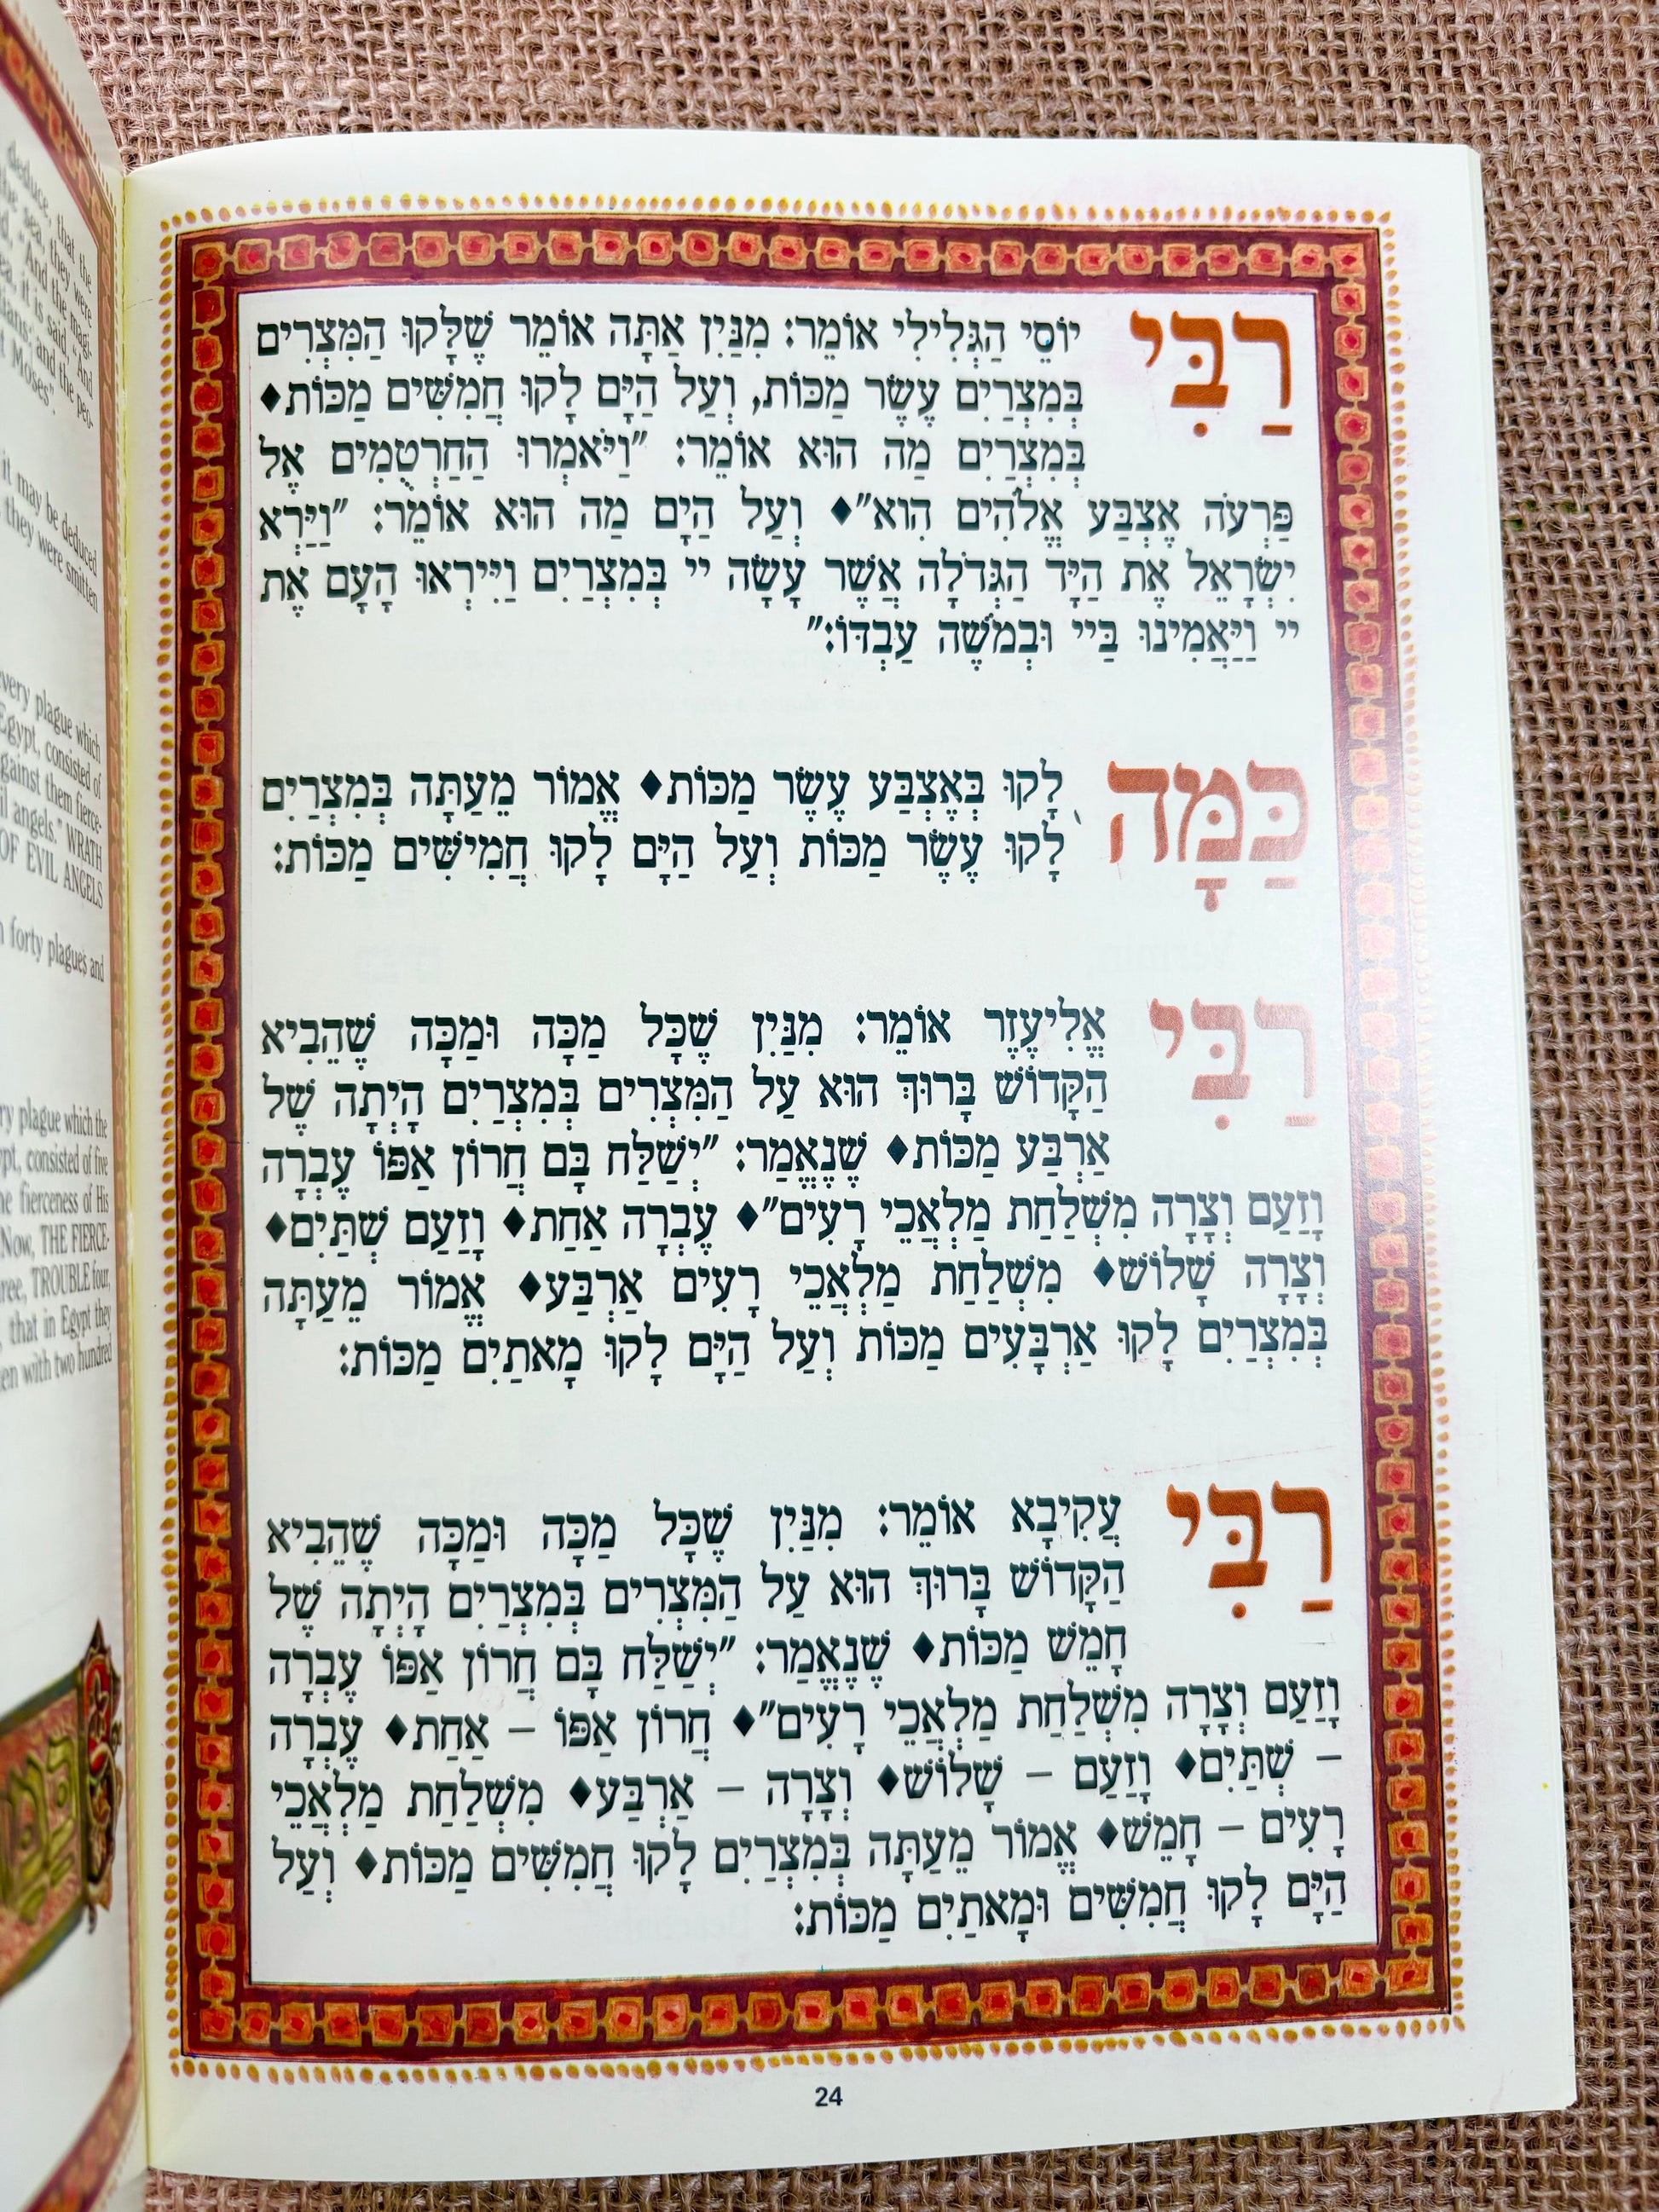 רַבִּי יוֹסֵי הַגְּלִילִי אוֹמֵר: מִנַּיִן אַתָּה אוֹמֵר שֶׁלָּקוּ הַמִּצְרִים
בְּמִצְרַיִם עֶשֶׂר מַכּוֹת, וְעַל הַיָּם לָקוּ חֲמִשִּׁים מַכּוֹת♦
בְּמִצְרַיִם מַה הוּא אוֹמֵר: "וַיֹּאמְרוּ הַחַרְטֻמִּים אֶל
פַּרְעֹה אֶצְבַּע אֱלֹהִים הִוא"♦ וְעַל הַיָּם מַה הוּא אוֹמֵר: "וַיַּרְא
יִשְׂרָאֵל אֶת הַיָּד הַגְּדֹלָה אֲשֶׁר עָשָׂה יי בְּמִצְרַיִם וַיִּירְאוּ הָעָם אֶת
יי וַיַּאֲמִינוּ בַּיי וּבְמֹשֶׁה עַבְדּוֹ:"
כַּמָּה לָקוּ בְּאֶצְבַּע עֶשֶׂר מַכּוֹת♦ אֱמוֹר מֵעַתָּה בְּמִצְרַיִם
לָקוּ עֶשֶׂר מַכּוֹת וְעַל הַיָּם לָקוּ חֲמִישִּׁים מַכּוֹת:
רַבִּי אֱלִיעֶזֶר אוֹמֵר: מִנַּיִן שֶׁכָּל מַכָּה וּמַכָּה שֶׁהֵבִיא
הַקָּדוֹשׁ בָּרוּךְ הוּא עַל הַמִּצְרִים בְּמִצְרַיִם הָיְתָה שֶׁל
אַרְבַּע מַכּוֹת♦ שֶׁנֶּאֱמַר: "יְשַׁלַּח בָּם חֲרוֹן אַפּוֹ עֶבְרָה
וָזַעַם וְצָרָה מִשְׁלַחַת מַלְאֲכֵי רָעִים"♦ עֶבְרָה אַחַת♦ וָזַעַם שְׁתַּיִם♦
וְצָרָה שָׁלוֹשׁ♦ מִשְׁלַחַת מַלְאֲכֵי רָעִים אַרְבַּע♦ אֱמוֹר מֵעַתָּה
בְּמִצְרַיִם לָקוּ אַרְבָּעִים מַכּוֹת וְעַל הַיָּם לָקוּ מָאתַיִם מַכּוֹת:
רַבִּי עֲקִיבָא אוֹמֵר: מִנַּיִן שֶׁכָּל מַכָּה וּמַכָּה שֶׁהֵבִיא
הַקָּדוֹשׁ בָּרוּךְ הוּא עַל הַמִּצְרִים בְּמִצְרַיִם הָיְתָה שֶׁל
חָמֵשׁ מַכּוֹת♦ שֶׁנֶּאֱמַר: "יְשַׁלַּח בָּם חֲרוֹן אַפּוֹ עֶבְרָה
וָזַעַם וְצָרָה מִשְׁלַחַת מַלְאֲכֵי רָעִים"♦ חֲרוֹן אַפּוֹ – אַחַת♦ עֶבְרָה
– שְׁתַּיִם♦ וָזַעַם – שָׁלוֹשׁ♦ וְצָרָה – אַרְבַּע♦ מִשְׁלַחַת מַלְאֲכֵי
רָעִים – חָמֵשׁ♦ אֱמוֹר מֵעַתָּה בְּמִצְרַיִם לָקוּ חֲמִשִּׁים מַכּוֹת♦ וְעַל
הַיָּם לָקוּ חֲמִשִּׁים וּמָאתַיִם מַכּוֹת:
24
deduce, that the
the sea, they were
"And the magi-
ea, it is said, "And
and the peo-
Moses".
it may be deduced
they were smitten
every plague which
Egypt, consisted of
against them fierce-
angels." WRATH
OF EVIL ANGELS
forty plagues and
plague which the
consisted of five
fierceness of His
Now, THE FIERCE-
TROUBLE four,
that in Egypt they
with two hundred